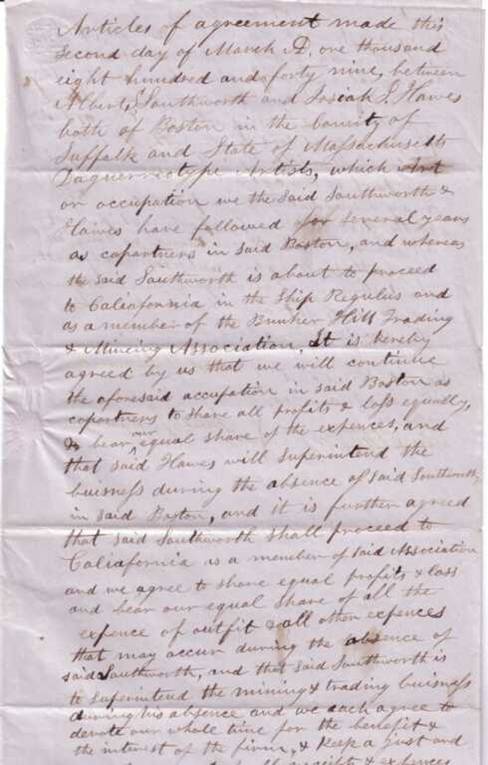 Articles of agreement made this
second day of March A.D. one thousand
eight hundred and forty nine, between
Albert S. Southworth and Josiah J. Hawes
both of Boston in the County of
Suffolk and State of Massachusetts
Daguerreotype Artists, which Art
or occupation we the said Southworth &
Hawes have followed for several years
as copartners in said Boston, and whereas
the said Southworth is about to proceed
to Caliafornia in the Ship Regulus and
as a member of the Bunker Hill Trading
& Mineing Association, It is hereby
agreed by us that we will continue
the aforesaid occupation in said Boston as
copartners to share all profits & loss equally,
& bear an equal share of the expences, and
that said Hawes will superintend the
buisness during the absence of said Southworth
in said Boston, and it is further agreed
that said Southworth shall proceed to
Caliafornia as a member of said Association
and we agree to share equal profits & loss
and bear our equal share of all the
expence of outfit & all other expences
that may accur during the absence of
said Southworth, and that said Southworth is
to superintend the mining & trading buisness
during his absence and we each agree to
devote our whole time for the benefit &
the interest of the firm, & keep a just and
all profits & expences